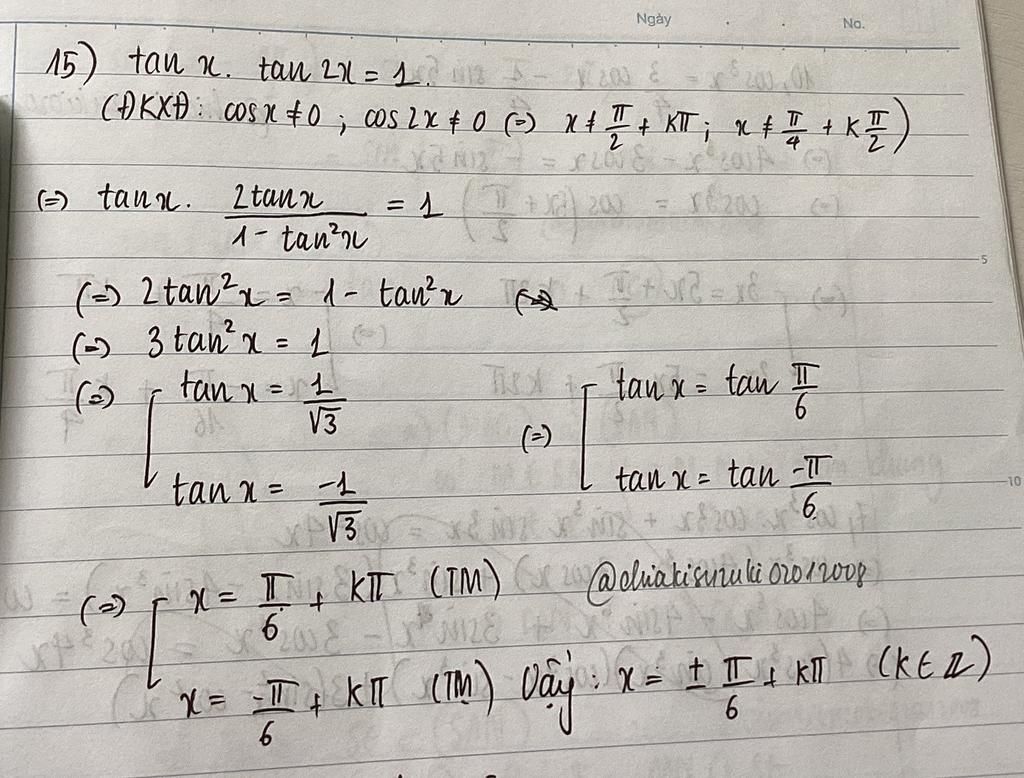 Ngày No.
15) tan x. tan 2x = 1.
(ĐKXĐ: cos x ≠ 0 ; cos 2x ≠ 0 (=) x ≠ π/2 + kπ; x ≠ π/4 + k π/2)
(=) tan x. 2tan x / (1 - tan²x) = 1
5
(=) 2tan²x = 1 - tan²x
(=) 3tan²x = 1
(=) [ tan x = 1/√3 (=) [ tan x = tan π/6
tan x = -1/√3 tan x = tan -π/6
10
(=) [ x = π/6 + kπ (TM) @chiakisuzuki02012008
x = -π/6 + kπ (TM) Vậy: x = ± π/6 + kπ (k ∈ ℤ)